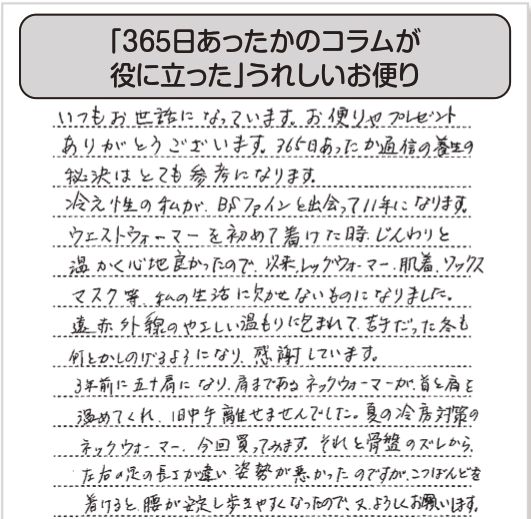 「365日あったかのコラムが
役に立った」うれしいお便り
いつもお世話になっています。お便りやプレゼント
ありがとうございます。365日あったか通信の養生の
秘決はとても参考になります。
冷え性の私が、BSファインと出会って11年になります。
ウエストウォーマーを初めて着けた時、じんわりと
温かく心地良かったので、以来、レッグウォーマー、肌着、ソックス
マスク等、私の生活に欠かせないものになりました。
遠赤外線のやさしい温もりに包まれて、苦手だった冬も
何とかしのげるようになり、感謝しています。
3年前に五十肩になり、肩まであるネックウォーマーが、首と肩を
温めてくれ、1日中手離せませんでした。夏の冷房対策の
ネックウォーマー、今回買ってみます。それと骨盤のズレから、
左右の足の長さが違い姿勢が悪かったのですが、こつばんどを
着けると、腰が安定し歩きやすくなったので、又、ようしくお願いします。